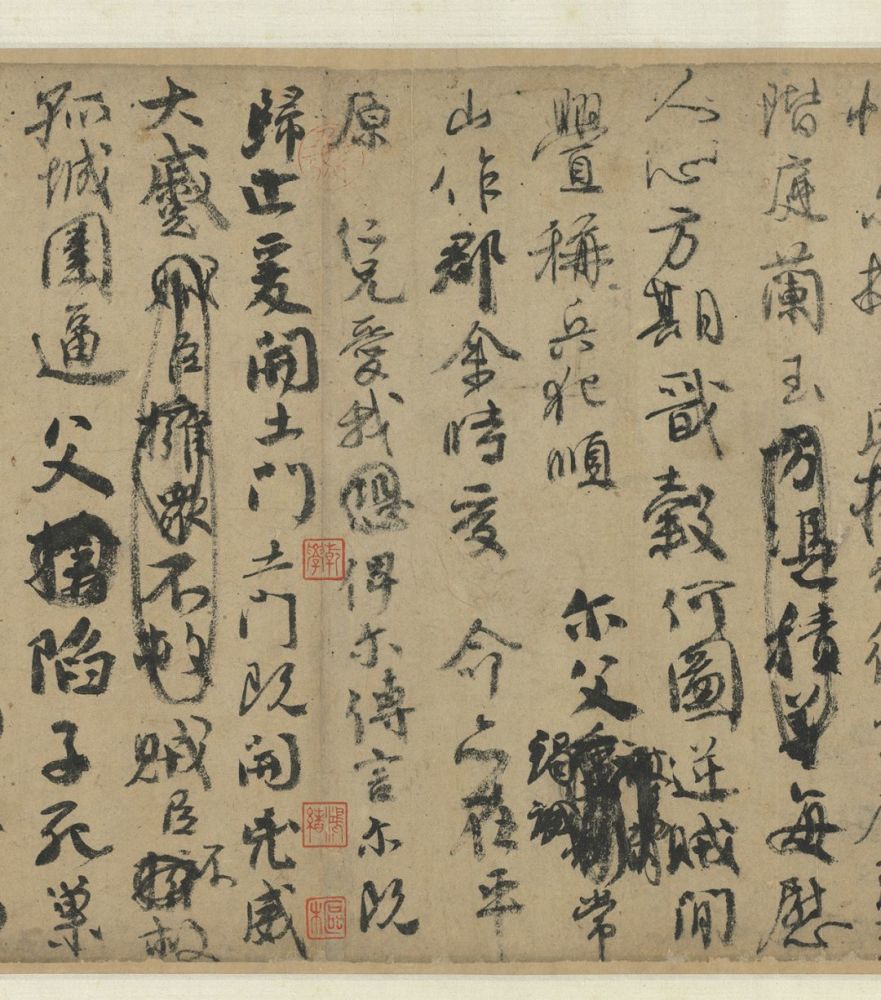 階庭蘭玉方憑積善每慰
人心方期戩穀何圖逆賊閒
舋稱兵犯順 尓父竭誠常
山作郡余時受 命亦在平
原 仁兄愛我恐俾尓傳言尓既
歸止爰開土門土門既開兇威
大蹙賊臣擁衆不救賊臣不救
孤城圍逼父擒陷子死巢
乾學